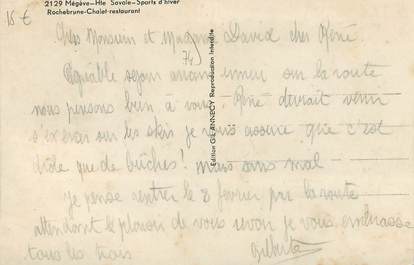 15 €
2129 Mégève-Hte Savoie-Sports d'hiver
Rochebrune-Chalet-restaurant
Chers Monsieur et Madame David cher René
74)
Agréable séjour aucun ennui sur la route
nous pensons bien à vous. René devrait venir
s'exercer sur les skis je vous assure que c'est
drôle que de bûches! mais sans mal
je pense rentrer le 8 février par la route
attendant le plaisir de vous revoir je vous embrasse
tous les trois
Gilberte
Edition GIL ANNECY Reproduction Interdite